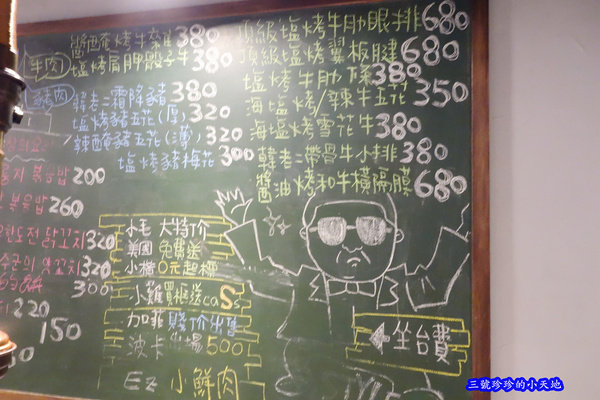 醬醃烤牛雜 380
牛肉 塩烤肩胛骰子牛 380
豬肉 韓老二霜降豬 380
塩烤豬五花(厚) 320
辣醃豬五花(薄) 320
塩烤豬梅花 300
頂級塩烤牛肋眼排 680
頂級塩烤翼板腱 680
塩烤牛肋條 380
海塩烤/辣牛五花 350
海塩烤雪花牛 380
韓老二帶骨牛小排 380
醬油烤和牛橫隔膜 680
볶음밥 200
볶음밥 260
320
320
300
220
150
小毛 大特價
美國 免費送
小楷 0元起標
小雞買極送caSs
加菲 賤價出售
波卡 出場500
Ez 小鮮肉
坐台費
三號珍珍的小天地